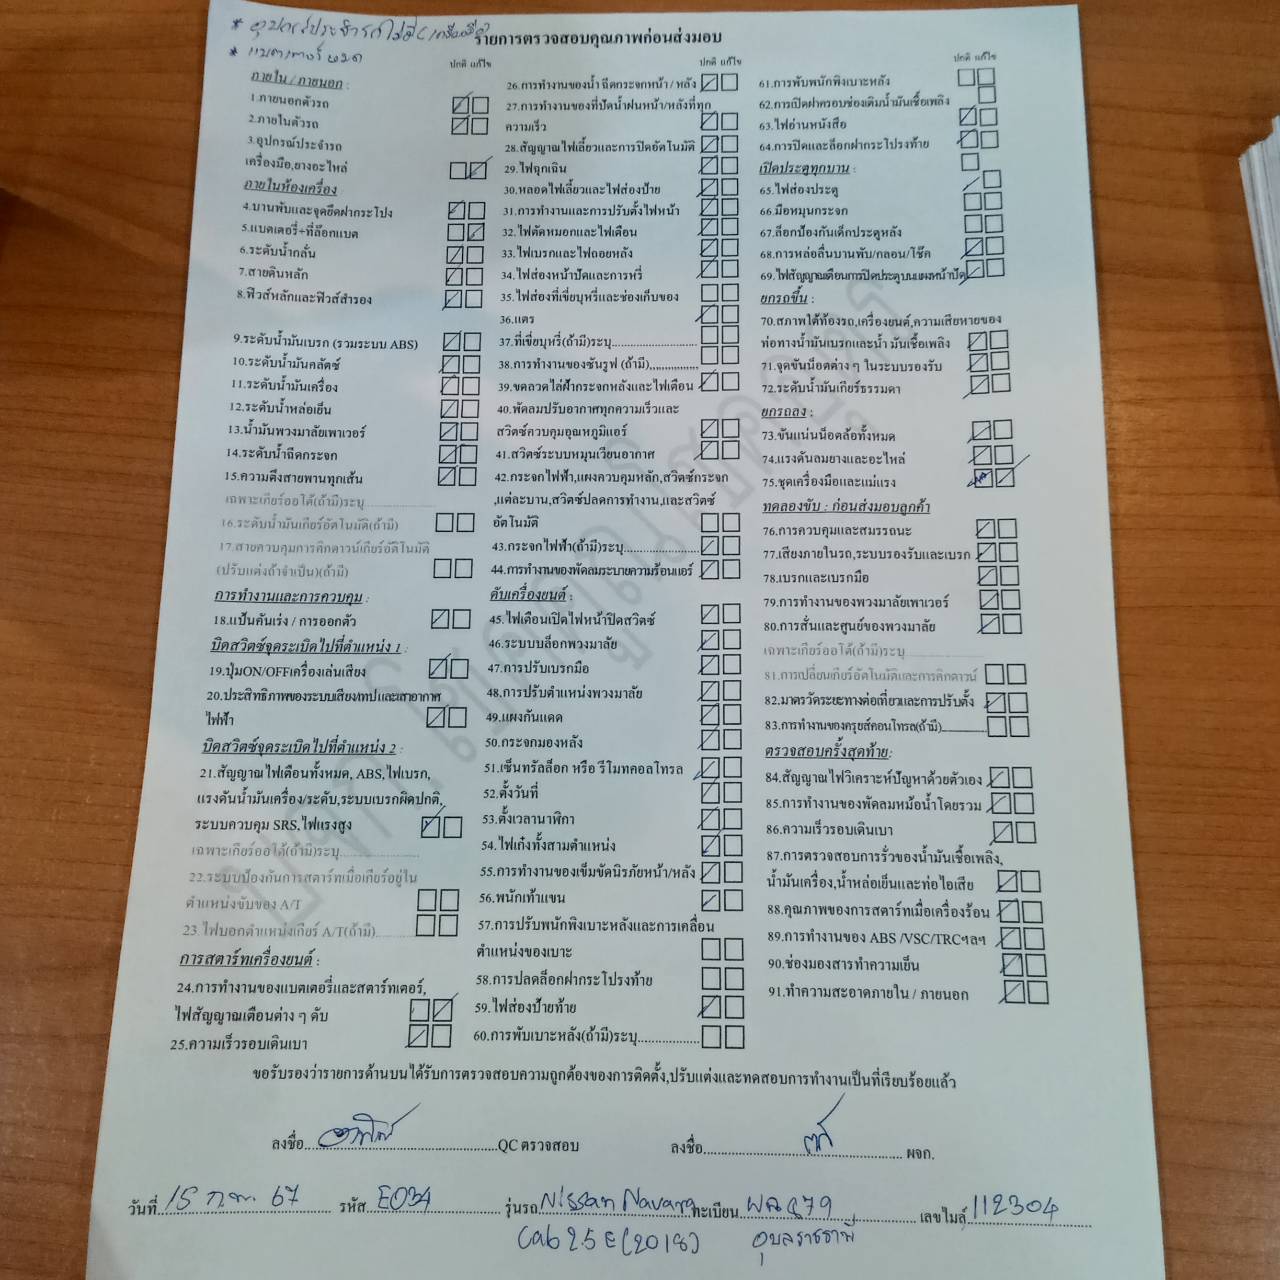 * อุปกรณ์ประจำรถไม่มี (เครื่องมือ)
* แบตเตอรี่ หมด
รายการตรวจสอบคุณภาพก่อนส่งมอบ
ปกติ แก้ไข
ภายใน / ภายนอก :
1.ภายนอกตัวรถ
2.ภายในตัวรถ
3.อุปกรณ์ประจำรถ
เครื่องมือ,ยางอะไหล่
ภายในห้องเครื่อง
4.บานพับและจุดยึดฝากระโปง
5.แบตเตอรี่+ที่ล็อกแบต
6.ระดับน้ำกลั่น
7.สายดินหลัก
8.ฟิวส์หลักและฟิวส์สำรอง
9.ระดับน้ำมันเบรก (รวมระบบ ABS)
10.ระดับน้ำมันคลัตช์
11.ระดับน้ำมันเครื่อง
12.ระดับน้ำหล่อเย็น
13.น้ำมันพวงมาลัยเพาเวอร์
14.ระดับน้ำฉีดกระจก
15.ความตึงสายพานทุกเส้น
เฉพาะเกียร์ออโต้(ถ้ามี)ระบุ
16.ระดับน้ำมันเกียร์อัตโนมัติ(ถ้ามี)
17.สายควบคุมการคิกดาวน์เกียร์อัติโนมัติ
(ปรับแต่งถ้าจำเป็น)(ถ้ามี)
การทำงานและการควบคุม :
18.แป้นคันเร่ง / การออกตัว
บิดสวิตซ์จุดระเบิดไปที่ตำแหน่ง 1 :
19.ปุ่มON/OFFเครื่องเล่นเสียง
20.ประสิทธิภาพของระบบเสียง/เทปและเสาอากาศ
ไฟฟ้า
บิดสวิตซ์จุดระเบิดไปที่ตำแหน่ง 2 :
21.สัญญาณไฟเตือนทั้งหมด, ABS,ไฟเบรก,
แรงดันน้ำมันเครื่อง/ระดับ,ระบบเบรกผิดปกติ,
ระบบควบคุม SRS,ไฟแรงสูง
เฉพาะเกียร์ออโต้(ถ้ามี)ระบุ
22.ระบบป้องกันการสตาร์ทเมื่อเกียร์อยู่ใน
ตำแหน่งขับของ A/T
23.ไฟบอกตำแหน่งเกียร์ A/T(ถ้ามี)
การสตาร์ทเครื่องยนต์ :
24.การทำงานของแบตเตอรี่และสตาร์ทเตอร์,
ไฟสัญญาณเตือนต่าง ๆ ดับ
25.ความเร็วรอบเดินเบา
ปกติ แก้ไข
26.การทำงานของน้ำ ฉีดกระจกหน้า / หลัง
27.การทำงานของที่ปัดน้ำฝนหน้า/หลังที่ทุก
ความเร็ว
28.สัญญาณไฟเลี้ยวและการปิดอัตโนมัติ
29.ไฟฉุกเฉิน
30.หลอดไฟเลี้ยวและไฟส่องป้าย
31.การทำงานและการปรับตั้งไฟหน้า
32.ไฟตัดหมอกและไฟเตือน
33.ไฟเบรกและไฟถอยหลัง
34.ไฟส่องหน้าปัดและการหรี่
35.ไฟส่องที่เขี่ยบุหรี่และช่องเก็บของ
36.แตร
37.ที่เขี่ยบุหรี่(ถ้ามี)ระบุ
38.การทำงานของซันรูฟ (ถ้ามี)
39.ขดลวดไล่ฝ้ากระจกหลังและไฟเตือน
40.พัดลมปรับอากาศทุกความเร็วและ
สวิตซ์ควบคุมอุณหภูมิแอร์
41.สวิตซ์ระบบหมุนเวียนอากาศ
42.กระจกไฟฟ้า,แผงควบคุมหลัก,สวิตซ์กระจก
,แต่ละบาน,สวิตซ์ปลดการทำงาน,และสวิตซ์
อัตโนมัติ
43.กระจกไฟฟ้า(ถ้ามี)ระบุ
44.การทำงานของพัดลมระบายความร้อนแอร์
ดับเครื่องยนต์ :
45.ไฟเตือนเปิดไฟหน้าปิดสวิตซ์
46.ระบบบล็อกพวงมาลัย
47.การปรับเบรกมือ
48.การปรับตำแหน่งพวงมาลัย
49.แผงกันแดด
50.กระจกมองหลัง
51.เซ็นทรัลล็อก หรือ รีโมทคอลโทรล
52.ตั้งวันที่
53.ตั้งเวลานาฬิกา
54.ไฟเก๋งทั้งสามตำแหน่ง
55.การทำงานของเข็มขัดนิรภัยหน้า/หลัง
56.พนักเท้าแขน
57.การปรับพนักพิงเบาะหลังและการเคลื่อน
ตำแหน่งของเบาะ
58.การปลดล็อกฝากระโปรงท้าย
59.ไฟส่องป้ายท้าย
60.การพับเบาะหลัง(ถ้ามี)ระบุ
ปกติ แก้ไข
61.การพับพนักพิงเบาะหลัง
62.การเปิดฝาครอบช่องเติมน้ำมันเชื้อเพลิง
63.ไฟอ่านหนังสือ
64.การปิดและล็อกฝากระโปรงท้าย
เปิดประตูทุกบาน :
65.ไฟส่องประตู
66.มือหมุนกระจก
67.ล็อกป้องกันเด็กประตูหลัง
68.การหล่อลื่นบานพับ/กลอน/โช๊ค
69.ไฟสัญญาณเตือนการปิดประตูบนแผงหน้าปัด
ยกรถขึ้น :
70.สภาพใต้ท้องรถ,เครื่องยนต์,ความเสียหายของ
ท่อทางน้ำมันเบรกและน้ำ มันเชื้อเพลิง
71.จุดขันน็อตต่าง ๆ ในระบบรองรับ
72.ระดับน้ำมันเกียร์ธรรมดา
ยกรถลง :
73.ขันแน่นน็อตล้อทั้งหมด
74.แรงดันลมยางและอะไหล่
75.ชุดเครื่องมือและแม่แรง
ทดลองขับ : ก่อนส่งมอบลูกค้า
76.การควบคุมและสมรรถนะ
77.เสียงภายในรถ,ระบบรองรับและเบรก
78.เบรกและเบรกมือ
79.การทำงานของพวงมาลัยเพาเวอร์
80.การสั่นและศูนย์ของพวงมาลัย
เฉพาะเกียร์ออโต้(ถ้ามี)ระบุ
81.การเปลี่ยนเกียร์อัตโนมัติและการคิกดาวน์
82.มาตรวัดระยะทางต่อเที่ยวและการปรับตั้ง
83.การทำงานของครุยส์คอนโทรล(ถ้ามี)
ตรวจสอบครั้งสุดท้าย:
84.สัญญาณไฟวิเคราะห์ปัญหาด้วยตัวเอง
85.การทำงานของพัดลมหม้อน้ำโดยรวม
86.ความเร็วรอบเดินเบา
87.การตรวจสอบการรั่วของน้ำมันเชื้อเพลิง,
น้ำมันเครื่อง,น้ำหล่อเย็นและท่อไอเสีย
88.คุณภาพของการสตาร์ทเมื่อเครื่องร้อน
89.การทำงานของ ABS /VSC/TRCฯลฯ
90.ช่องมองสารทำความเย็น
91.ทำความสะอาดภายใน / ภายนอก
ขอรับรองว่ารายการด้านบนได้รับการตรวจสอบความถูกต้องของการติดตั้ง,ปรับแต่งและทดสอบการทำงานเป็นที่เรียบร้อยแล้ว
ลงชื่อ QC ตรวจสอบ ลงชื่อ ผจก.
วันที่ 15 ก.พ. 67 รหัส E034 รุ่นรถ Nissan Navara ทะเบียน เลขไมล์ 112304
Cab 2.5 E (2018) อุบลราชธานี